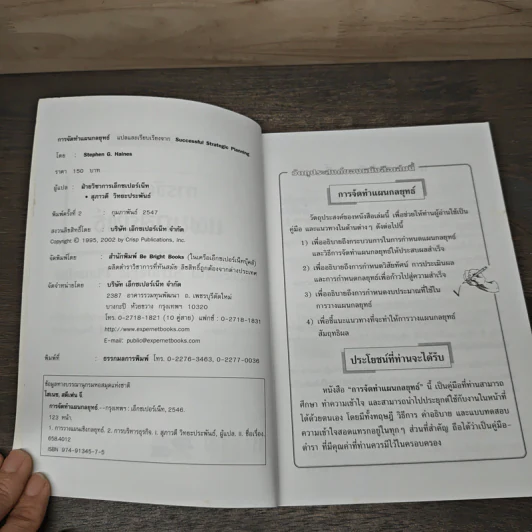 การจัดทำแผนกลยุทธ์ แปลและเรียบเรียงจาก Successful Strategic Planning
โดย : Stephen G. Haines
ราคา 150 บาท
ผู้แปล : ฝ่ายวิชาการเอ็กซเปอร์เน็ท
• สุภาวดี วิทยะประพันธ์
พิมพ์ครั้งที่ 2 กุมภาพันธ์ 2547
สงวนลิขสิทธิ์โดย : บริษัท เอ็กซเปอร์เน็ท จำกัด
Copyright © 1995, 2002 by Crisp Publications, Inc.
จัดพิมพ์โดย : สำนักพิมพ์ Be Bright Books (ในเครือเอ็กซเปอร์เน็ทบุ๊คส์)
ผลิตตำราวิชาการที่ทันสมัย ลิขสิทธิ์ถูกต้องจากต่างประเทศ
จัดจำหน่ายโดย : บริษัท เอ็กซเปอร์เน็ท จำกัด
2387 อาคารรวมทุนพัฒนา ถ.เพชรบุรีตัดใหม่
บางกะปิ ห้วยขวาง กรุงเทพฯ 10320
โทร. 0-2718-1821 (10 คู่สาย) แฟกซ์ : 0-2718-1831
http://www.expernetbooks.com
E-mail: public@expernetbooks.com
พิมพ์ที่ : ธรรกมลการพิมพ์ โทร. 0-2276-3463, 0-2277-0036
ข้อมูลทางบรรณานุกรมหอสมุดแห่งชาติ
ไฮเนซ, สตีเฟ่น จี
การจัดทำแผนกลยุทธ์.--กรุงเทพฯ : เอ็กซเปอร์เน็ท, 2546.
122 หน้า.
1. การวางแผนเชิงกลยุทธ์. 2. การบริหารธุรกิจ. I. สุภาวดี วิทยะประพันธ์, ผู้แปล. II. ชื่อเรื่อง.
658.4012
ISBN 974-91345-7-5
วัตถุประสงค์ของหนังสือเล่มนี้
การจัดทำแผนกลยุทธ์
วัตถุประสงค์ของหนังสือเล่มนี้ เพื่อช่วยให้ท่านผู้อ่านใช้เป็น
คู่มือ และแนวทางในด้านต่างๆ ดังต่อไปนี้
1) เพื่ออธิบายถึงกระบวนการในการกำหนดแผนกลยุทธ์
และวิธีการจัดทำแผนกลยุทธ์ให้ประสบผลสำเร็จ
2) เพื่ออธิบายถึงการกำหนดวิสัยทัศน์ การประเมินผล
และการกำหนดกลยุทธ์เพื่อก้าวไปสู่ความสำเร็จ
3) เพื่ออธิบายถึงการกำหนดงบประมาณที่ใช้ใน
การวางแผนกลยุทธ์
4) เพื่อชี้แนะแนวทางที่จะทำให้การวางแผนกลยุทธ์
สัมฤทธิผล
ประโยชน์ที่ท่านจะได้รับ
หนังสือ "การจัดทำแผนกลยุทธ์" นี้ เป็นคู่มือที่ท่านสามารถ
ศึกษา ทำความเข้าใจ และสามารถนำไปประยุกต์ใช้กับงานในหน้าที่
ได้ด้วยตนเอง โดยมีทั้งทฤษฎี วิธีการ คำอธิบาย และแบบทดสอบ
ความเข้าใจสอดแทรกอยู่ในทุกๆ ส่วนที่สำคัญ ถือได้ว่าเป็นคู่มือ-
ตำรา ที่มีคุณค่าที่ท่านควรมีไว้ในครอบครอง